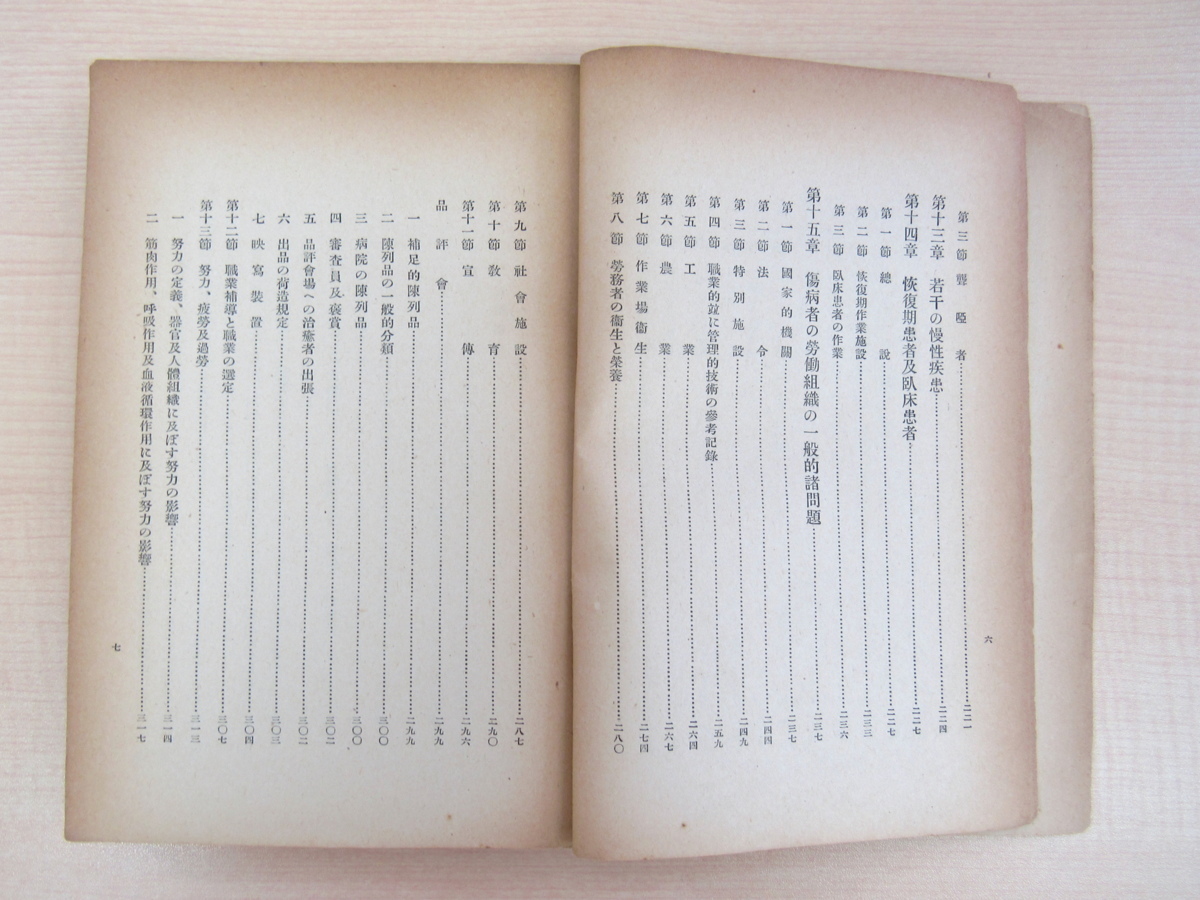 第三節 聾啞者……二二一
第十三章 若干の慢性疾患……二二四
第十四章 恢復期患者及臥床患者……二二七
第一節 總說……二二七
第二節 恢復期作業施設……二三三
第三節 臥床患者の作業……二三六
第十五章 傷病者の勞働組織の一般的諸問題……二三七
第一節 國家的機關……二三七
第二節 法令……二四四
第三節 特別施設……二四九
第四節 職業的竝に管理的技術の參考記錄……二五九
第五節 工業……二六四
第六節 農業……二六七
第七節 作業場衞生……二七四
第八節 勞務者の衞生と榮養……二八〇
六
第九節 社會施設……二八七
第十節 敎育……二九〇
第十一節 宣傳……二九六
品評會……二九九
一 補足的陳列品……二九九
二 陳列品の一般的分類……三〇〇
三 病院の陳列品……三〇〇
四 審査員及褒賞……三〇二
五 品評會場への治癒者の出張……三〇二
六 出品の荷造規定……三〇三
七 映寫裝置……三〇四
第十二節 職業補導と職業の選定……三〇七
第十三節 努力、疲勞及過勞……三一三
一 努力の定義、器官及人體組織に及ぼす努力の影響……三一四
二 筋肉作用、呼吸作用及血液循環作用に及ぼす努力の影響……三一七
七